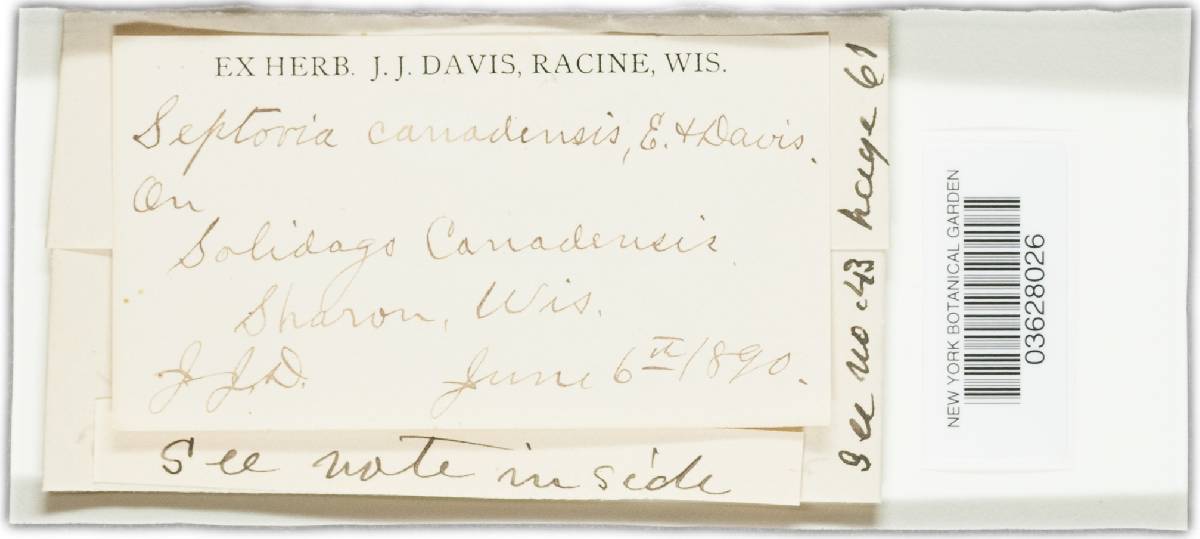 EX HERB. J. J. DAVIS, RACINE, WIS.
Septoria canadensis, E. & Davis.
On
Solidago Canadensis
Sharon, Wis.
J J D. June 6th 1890.
See note inside
See no. 43 page 61
NEW YORK BOTANICAL GARDEN
03628026